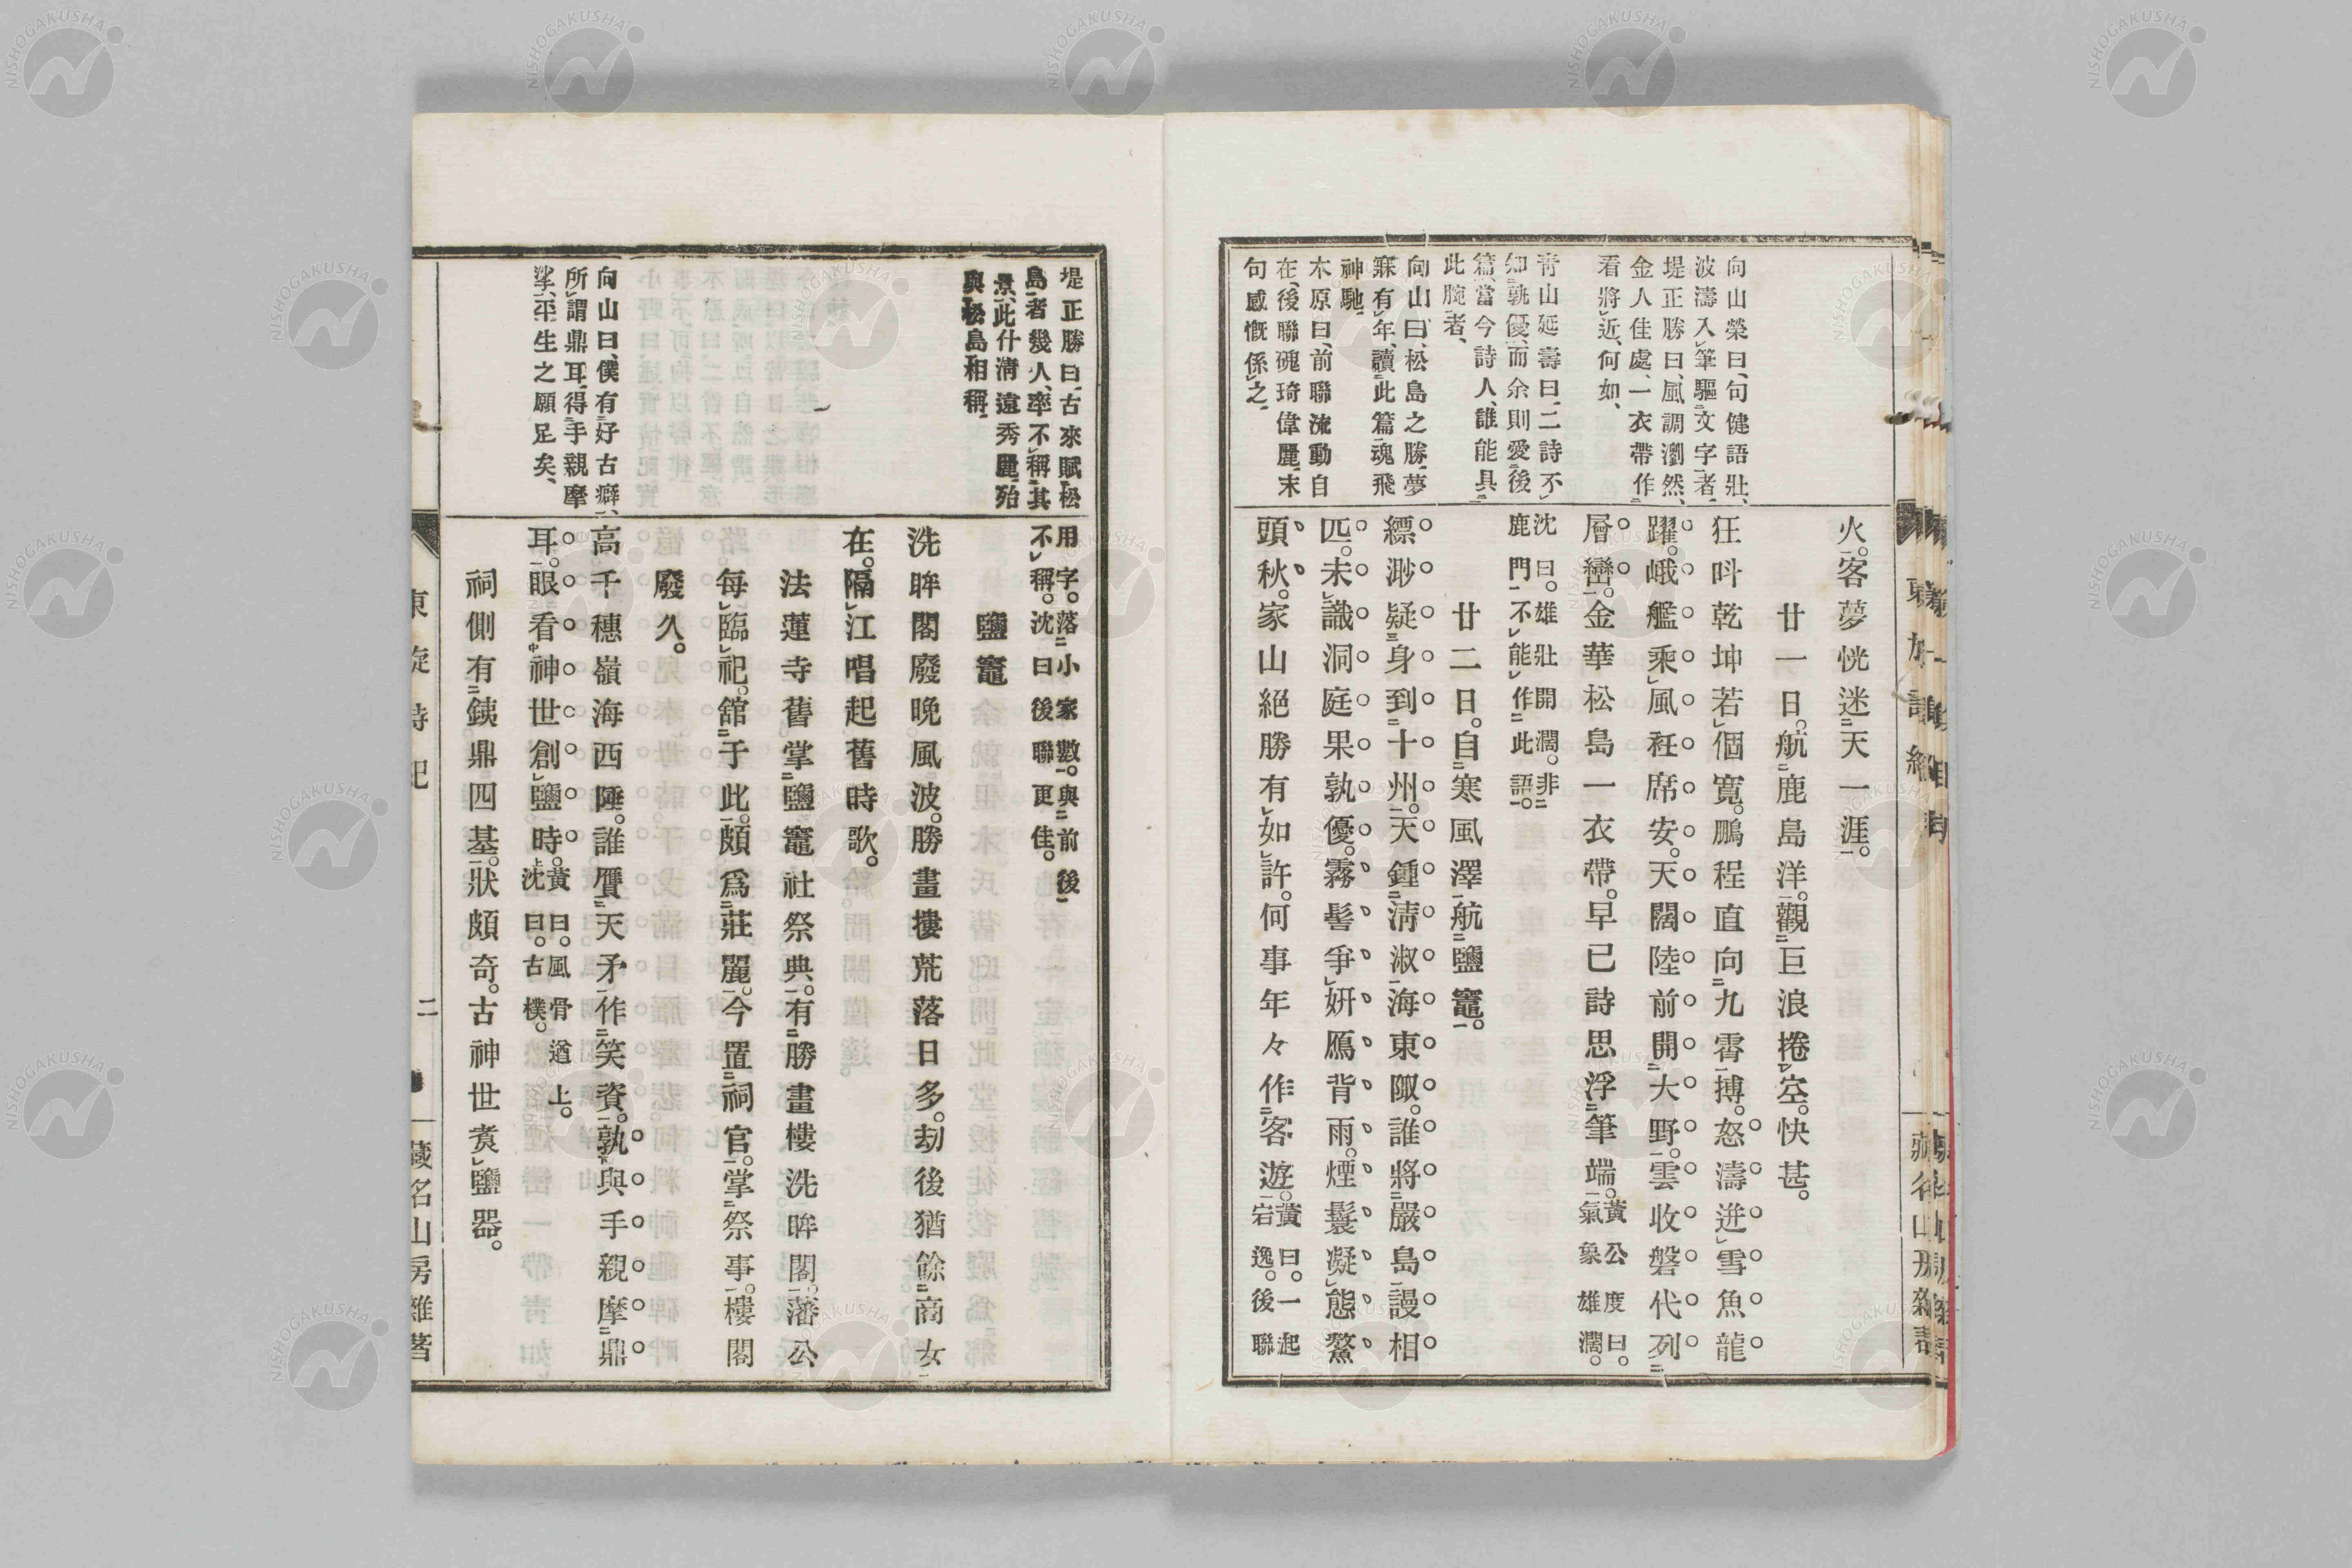 向山榮曰、句健語壯、
波濤入筆驅文字者、
堤正勝曰、風調瀏然、
金人佳處、一衣帶作
看將近、何如、
青山延壽曰、二詩不
知孰優、而余則愛後
篇、當今詩人、誰能具
此腕者、
向山曰、松島之勝、夢
寐有年、讀此篇、魂飛
神馳、
木原曰、前聯流動自
在、後聯磈琦偉麗、末
句感慨係之、
火。客夢恍迷天一涯。
廿一日。航鹿島洋。觀巨浪捲空。快甚。
狂呌乾坤若個寬。鵬程直向九霄搏。怒濤迸雪魚龍
躍。峨艦乘風衽席安。天闊陸前開大野。雲收磐代列
層巒。金華松島一衣帶。早已詩思浮筆端。黃公度曰。
氣象雄濶。
沈曰。雄壯開濶。非
鹿門不能作此語。
廿二日。自寒風澤航鹽竈。
縹渺疑身到十州。天鍾淸淑海東陬。誰將嚴島謾相
匹。未識洞庭果孰優。霧髻爭姸鴈背雨。煙鬟凝態鰲
頭秋。家山絕勝有如許。何事年々作客遊。黃曰。一起
宕逸。後聯
堤正勝曰、古來賦松
島者幾人、率不稱其
景、此什淸遠秀麗、殆
與松島相稱、
向山曰、僕有好古癖、
所謂鼎耳、得手親摩
挲、平生之願足矣、
用字。落小家數。與前後
不稱。沈曰後聯更佳。
鹽竈
洗眸閣廢晚風波。勝畫樓荒落日多。劫後猶餘商女
在。隔江唱起舊時歌。
法蓮寺舊掌鹽竈社祭典。有勝畫樓洗眸閣。藩公
每臨祀。舘于此。頗爲莊麗。今置祠官。掌祭事。樓閣
廢久。
高千穗嶺海西陲。誰贋天矛作笑資。孰與手親摩鼎
耳。眼看神世創鹽時。黃曰。風骨遒上。
沈曰。古樸。
祠側有銕鼎四基。狀頗奇。古神世煑鹽器。
東旋詩紀
二
藏名山房雜著
NISHOGAKUSHA